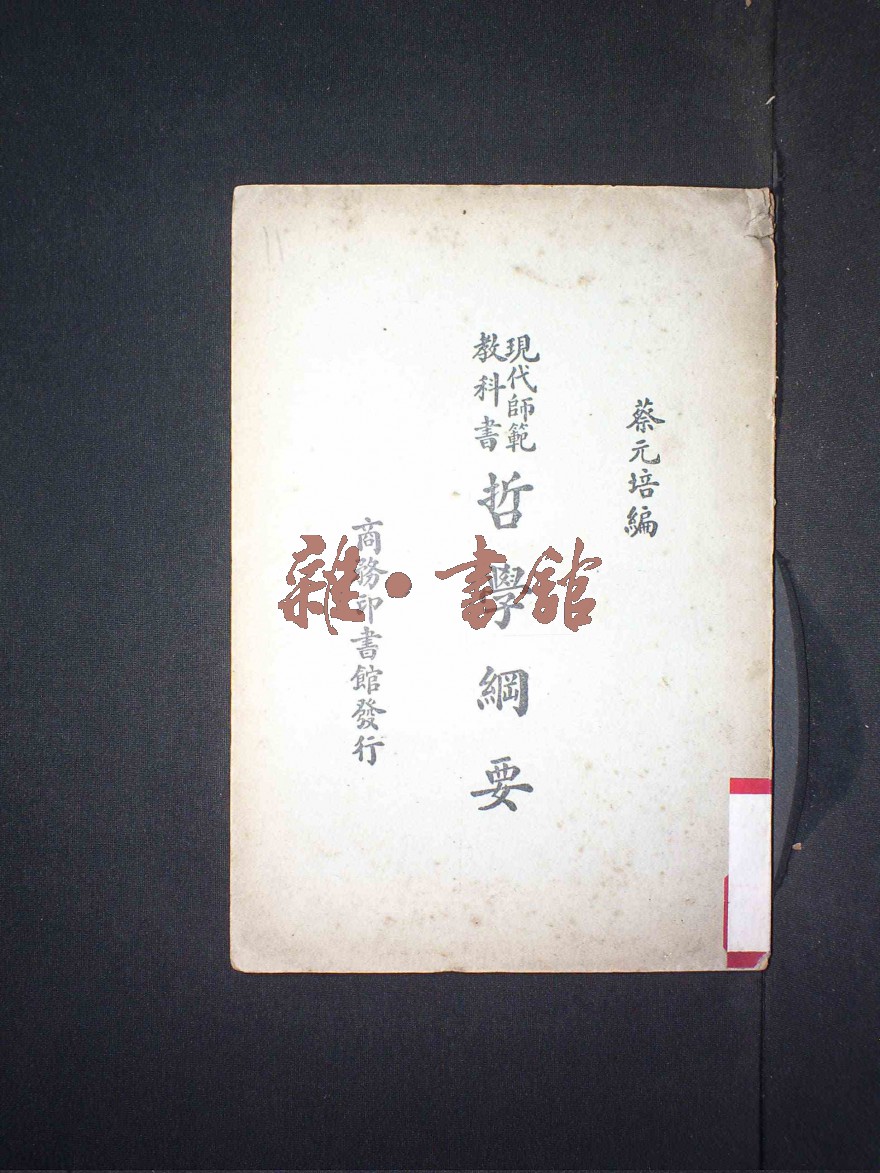 蔡元培編
現代師範
教科書
哲學綱要
商務印書館發行
雜·書館